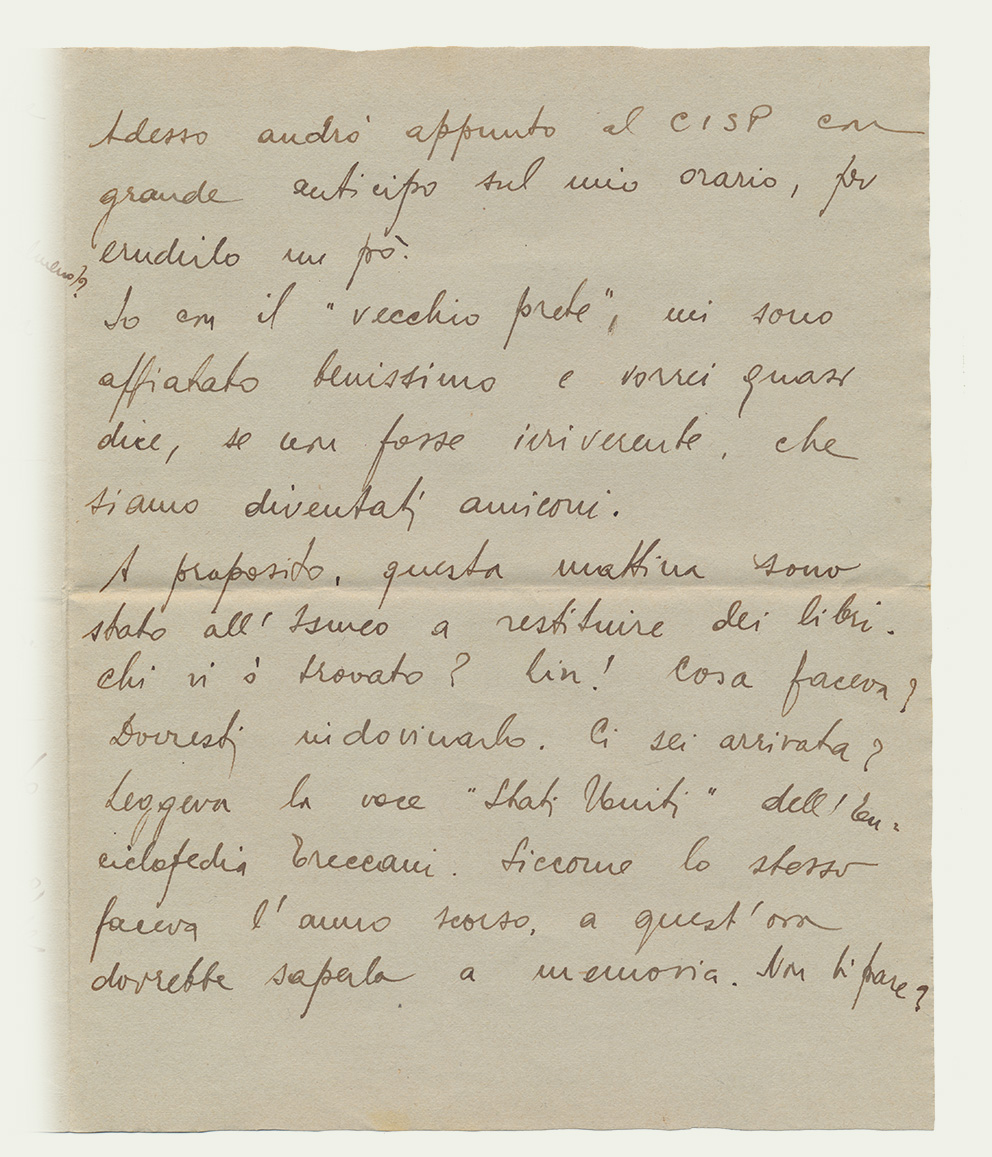 Adesso andrò appunto al CISP con
grande anticipo sul mio orario, per
erudirlo un pò.
Io con il "vecchio prete", mi sono
affiatato benissimo e vorrei quasi
dire, se non fosse irriverente, che
siamo diventati amiconi.
A proposito, questa mattina sono
stato all'Ismeo a restituire dei libri.
Chi vi ò trovato? Lin! Cosa faceva?
Dovresti indovinarlo. Ci sei arrivata?
Leggeva la voce "Stati Uniti" dell'En-
ciclopedia Treccani. Siccome lo stesso
faceva l'anno scorso, a quest'ora
dovrebbe saperla a memoria. Non ti pare?